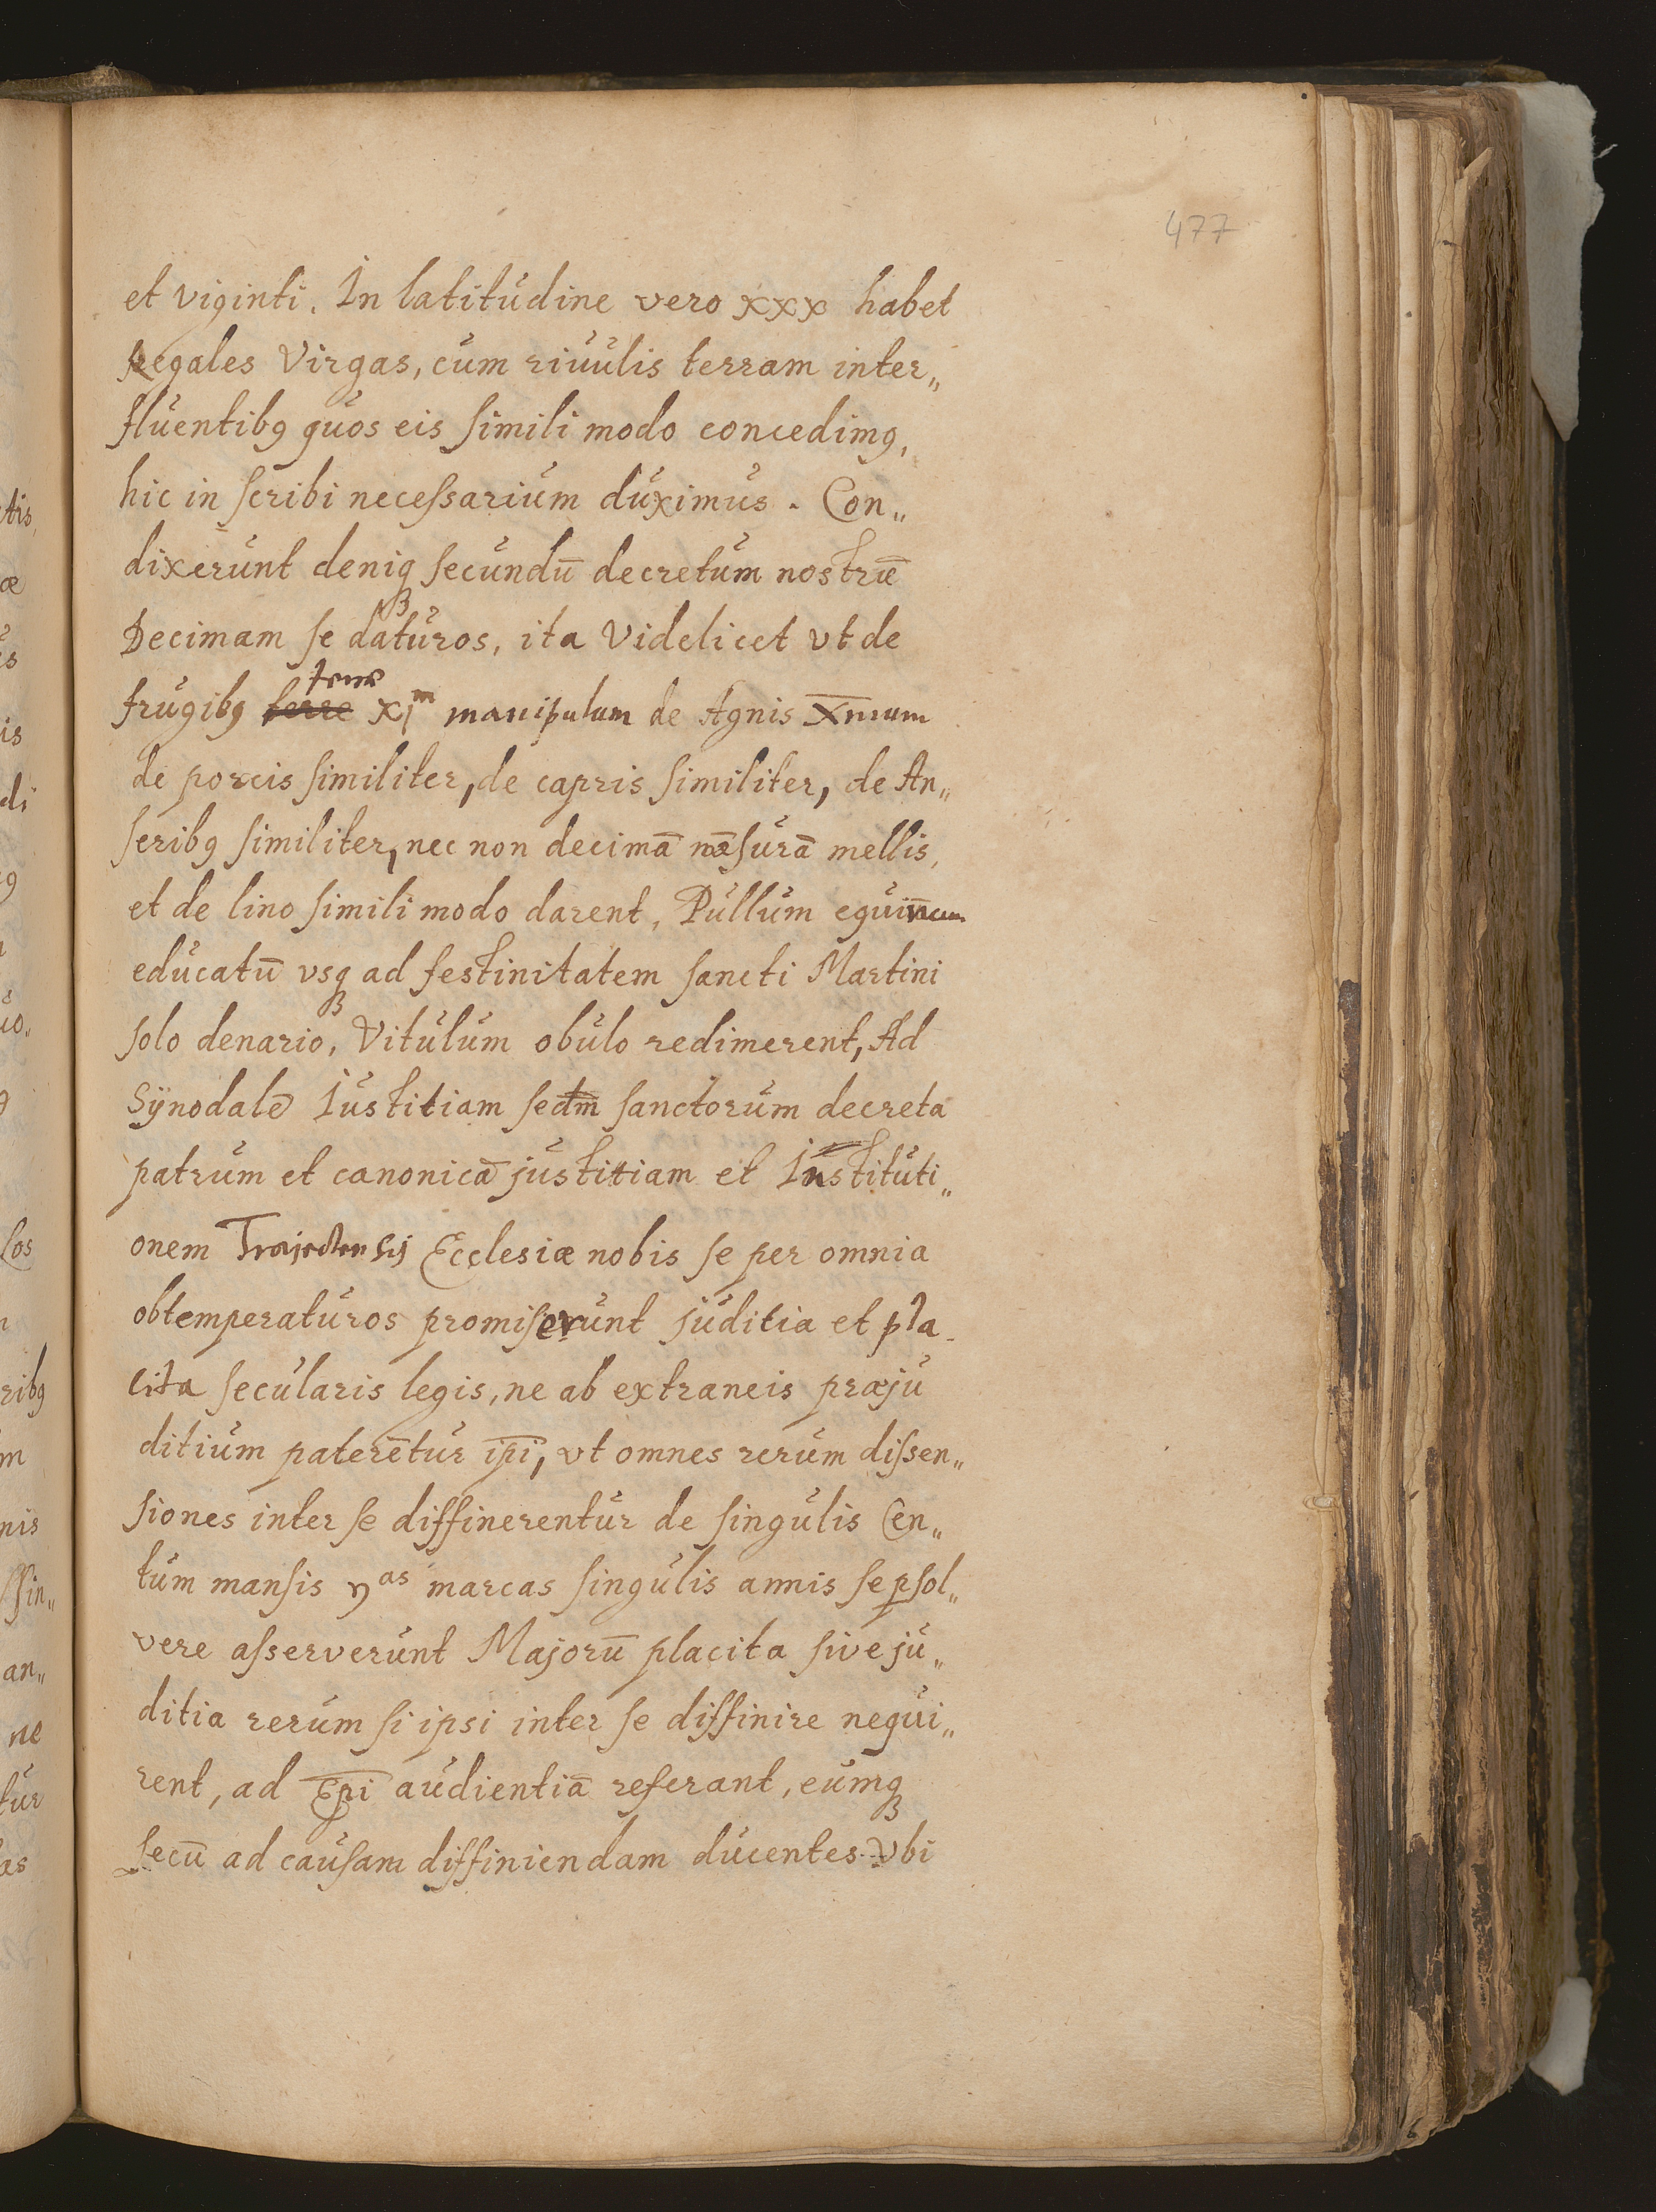 477
et viginti. In latitudine vero xxx habet
Regales Virgas, cum riuulis terram inter„
fluentibꝫ quos eis simili modo concedimꝰ,
hic in scribi necessarium duximus. Con„
dixerunt deniqꝫ secundū decretum nostrū
Decimam se daturos, ita Videlicet vt de
frugibꝫ terre terræ xjᵐ manipulum de Agnis Xmum
de porcis similiter, de capris similiter, de An„
seribꝫ similiter, nec non decimā mēsurā mellis,
et de lino simili modo darent. Pullum equinum
educatū vsqꝫ ad festinitatem sancti Martini
solo denario, Vitulum obulo redimerent, Ad
Sÿnodalē Iustitiam sectm̄ sanctorum decreta
patrum et canonicā justitiam et Instituti„
onem Trajectensis Ecclesiæ nobis se per omnia
obtemperaturos promiserunt juditia et pla-
cita secularis legis, ne ab extraneis præju
ditium paterētur ip̄i, vt omnes rerum dissen„
siones inter se diffinerentur de singulis Cen„
tum mansis yᵃˢ marcas singulis annis se ꝑsol„
vere asserverunt Majorū placita sive ju„
ditia rerum si ipsi inter se diffinire nequi„
rent, ad Ep̄i audientiā referant, eumqꝫ
secū ad causam diffiniendam ducentes vbi